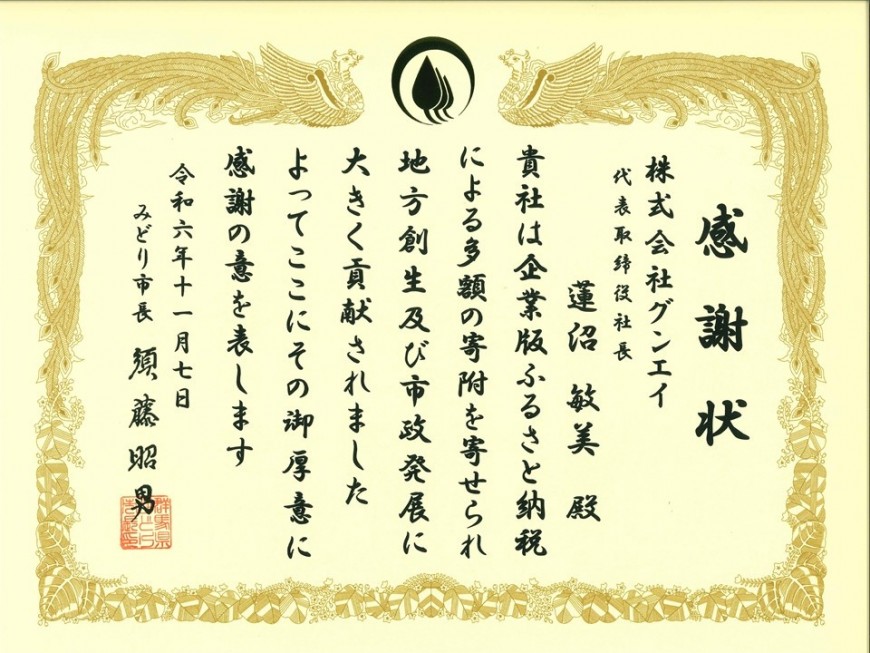 感謝状
株式会社グンエイ
代表取締役社長
蓮沼 敏美 殿
貴社は企業版ふるさと納税
による多額の寄附を寄せられ
地方創生及び市政発展に
大きく貢献されました
よってここにその御厚意に
感謝の意を表します
令和六年十一月七日
みどり市長 須藤昭男